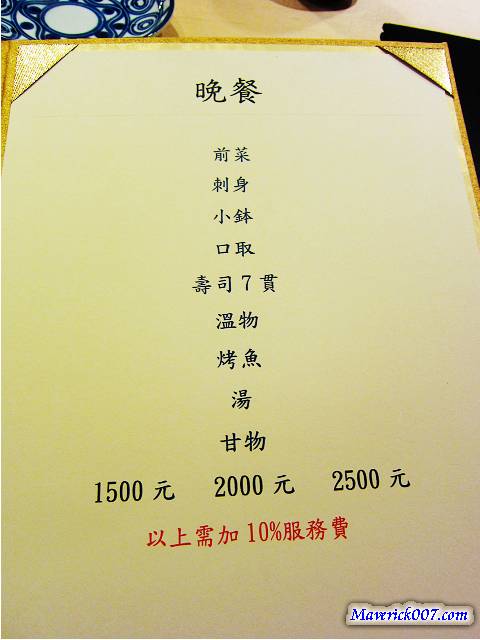 晚餐
前菜
刺身
小鉢
口取
壽司7貫
溫物
烤魚
湯
甘物
1500元 2000元 2500元
以上需加10%服務費
Maverick007.com